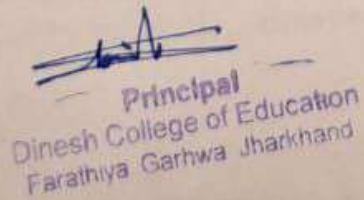 Principal
Dinesh College of Education
Farathiya Garhwa Jharkhand